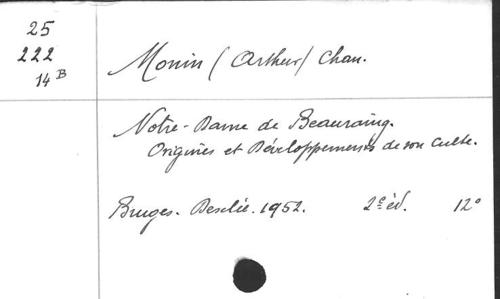 25
222
14 B
Monin (Arthur) Chan.
Notre-Dame de Beauraing.
Origines et Développements de son Culte.
Bruges. Desclée. 1952. 2e éd. 12°